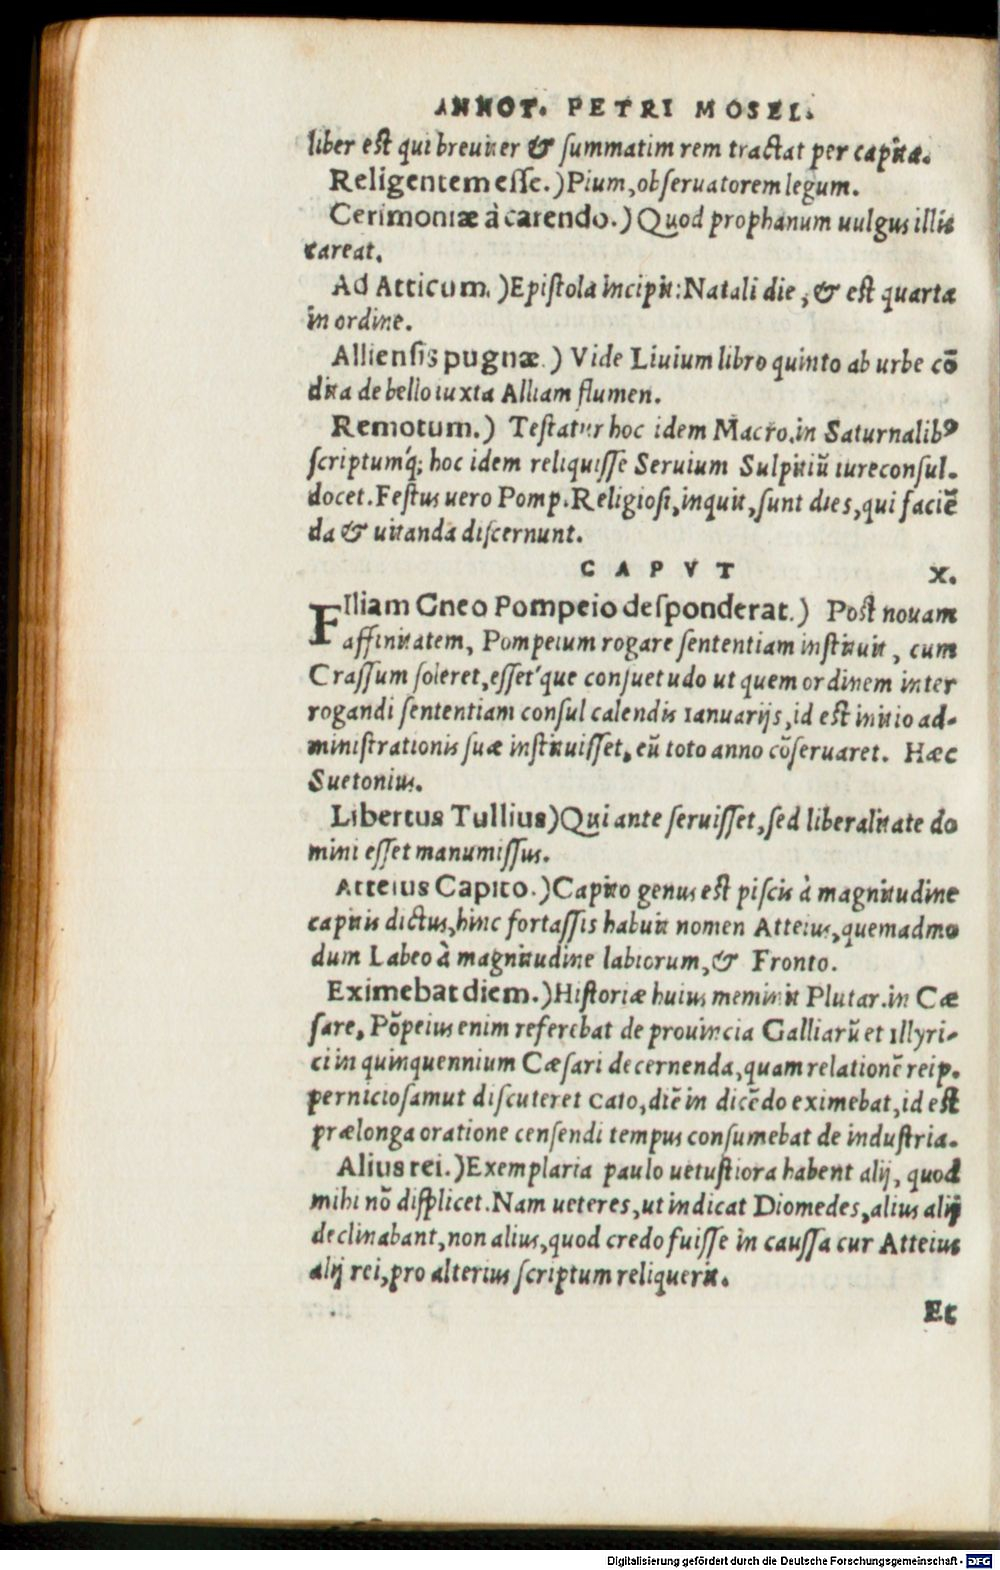 ANNOT. PETRI MOSEL.
liber est qui breuiter & summatim rem tractat per capita.
Religentem esse.) Pium, obseruatorem legum.
Cerimoniæ à carendo.) Quod prophanum uulgus illis
careat.
Ad Atticum.) Epistola incipit: Natali die, & est quarta
in ordine.
Alliensis pugnæ.) Vide Liuium libro quinto ab urbe cō
dita de bello iuxta Alliam flumen.
Remotum.) Testatur hoc idem Macro. in Saturnalibꝰ
scriptumq́; hoc idem reliquisse Seruium Sulpitiū iureconsul.
docet. Festus uero Pomp. Religiosi, inquit, sunt dies, qui faciē
da & uitanda discernunt.
CAPVT X.
FIliam Gneo Pompeio desponderat.) Post nouam
affinitatem, Pompeium rogare sententiam instituit, cum
Crassum soleret, esset'que consuetudo ut quem ordinem inter
rogandi sententiam consul calendis Ianuarijs, id est initio ad-
ministrationis suæ instituisset, eū toto anno cōseruaret. Hæc
Suetonius.
Libertus Tullius) Qui ante seruisset, sed liberalitate do
mini esset manumissus.
Atteius Capito.) Capito genus est piscis à magnitudine
capitis dictus, hinc fortassis habuit nomen Atteius, quemadmo
dum Labeo à magnitudine labiorum, & Fronto.
Eximebat diem.) Historiæ huius meminit Plutar. in Cæ
sare, Pōpeius enim referebat de prouincia Galliarū et Illyri-
ci in quinquennium Cæsari decernenda, quam relationē reip.
perniciosam ut discuteret Cato, diē in dicēdo eximebat, id est
prælonga oratione censendi tempus consumebat de industria.
Alius rei.) Exemplaria paulo uetustiora habent alij, quod
mihi nō displicet. Nam ueteres, ut indicat Diomedes, alius alij
declinabant, non alius, quod credo fuisse in caussa cur Atteius
alij rei, pro alterius scriptum reliquerit.
Et
Digitalisierung gefördert durch die Deutsche Forschungsgemeinschaft - DFG